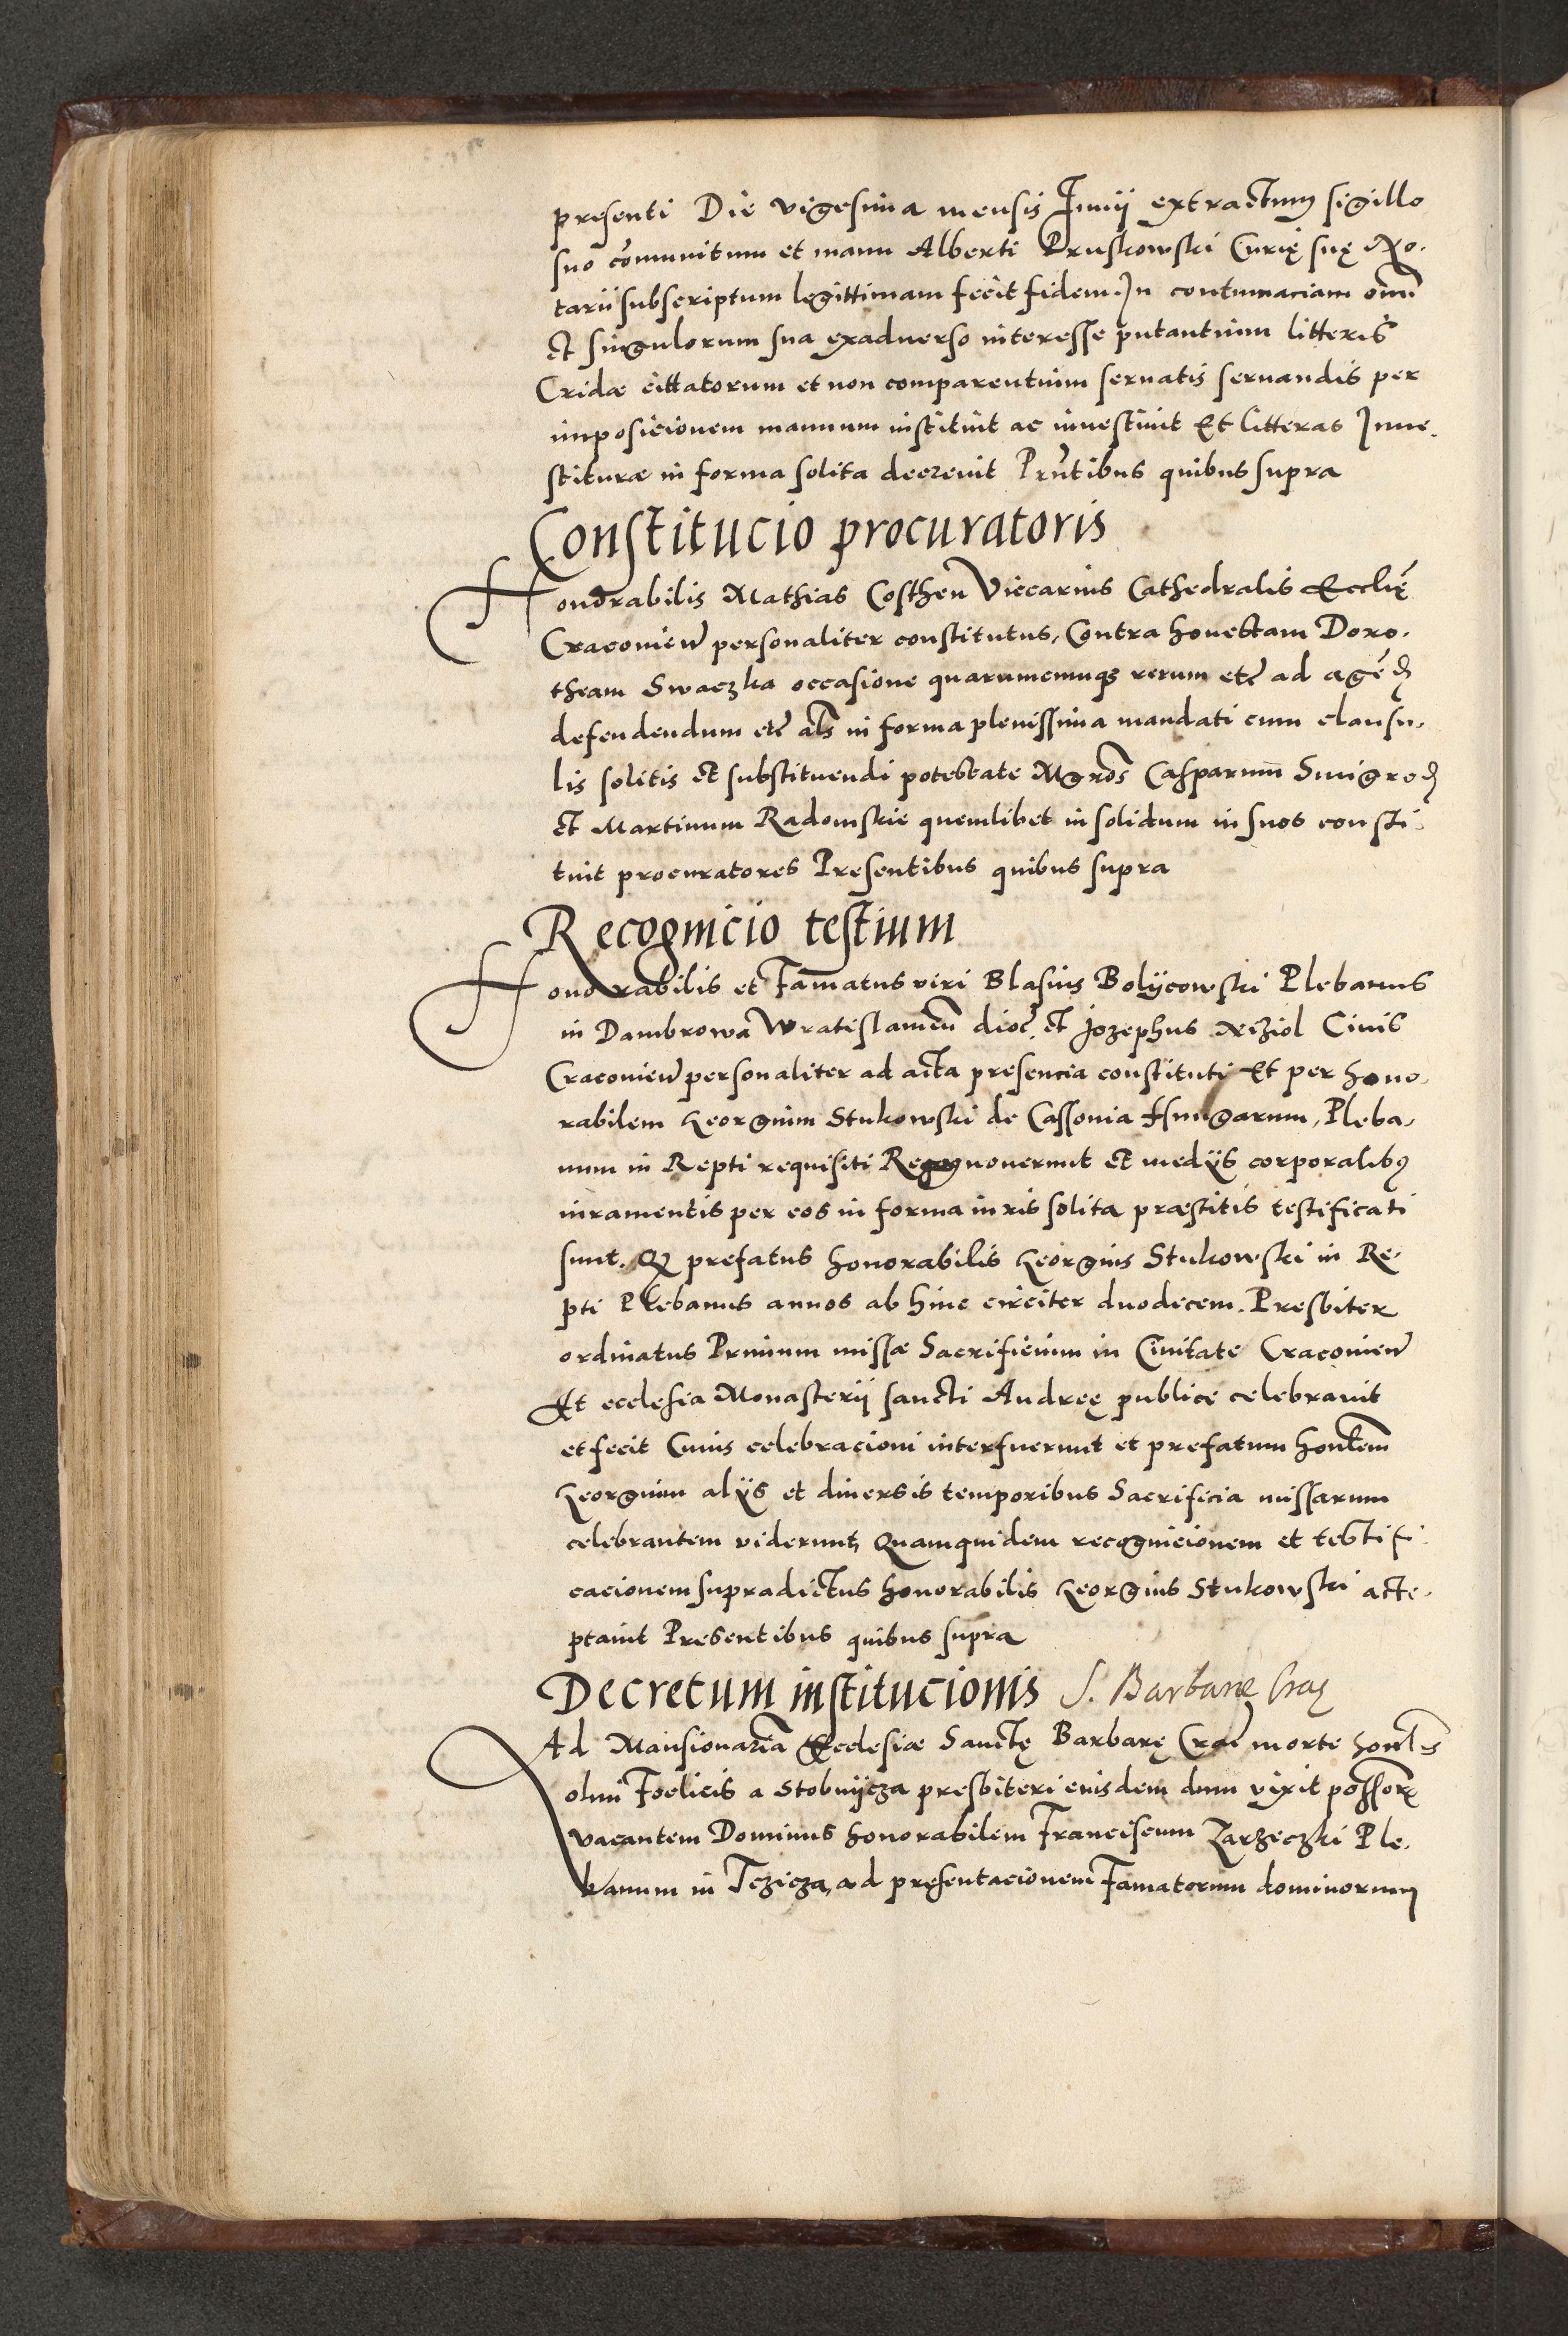 presenti Die vigesima mensis Junij extractum sigillo
suo cõmunitum et manu Alberti Pruskowski Curię suę No-
tarii subscriptum legittimam fecit fidem. In contumaciam oñiũ
et singulorum sua exaduerso interesse putantium litteris
Cridæ cittatorum et non comparentium seruatis seruandis per
imposicionem manuum instituit ac inuestiuit Et litteras Inue-
stituræ in forma solita decreuit Prñtibus quibus supra
Constitucio procuratoris
Honorabilis Mathias Costhen Viccarius Cathedralis Eccłię
Cracouień personaliter constitutus, Contra honestam Doro-
theam Swaczka occasione quarumcunqȝ rerum etč ad agēd
defendendum etč ałs in forma plenissima mandati cum clausu-
lis solitis et substituendi potestate Mgros Casparum Smigrod
et Martinum Radomskie quemlibet in solidum in suos consti-
tuit procuratores Presentibus quibus supra
Recognicio testium
Honorabilis et Famatus viri Blasius Bolijcowski Plebanus
in Dambrowa Wratislauień dioč. et Jozephus Niziol Ciuis
Cracouień personaliter ad acta presencia constituti Et per hono-
rabilem Georgium Stukowski de Cassouia Hungarum, Pleba-
num in Repti requisiti Recognouerunt et medijs corporalibꝯ
iuramentis per eos in forma iuris solita præstitis testificati
sunt. Q prefatus honorabilis Georgius Stukowski in Re-
pti Plebanus annos ab hinc circiter duodecem. Presbiter
ordinatus Primum missæ Sacrificium in Ciuitate Cracouień
Et ecclesia Monasterij sancti Andreę publice celebrauit
et fecit Cuius celebracioni interfuerunt et prefatum honłem
Georgium alijs et diuersis temporibus Sacrificia missarum
celebrantem viderunt, Quamquidem recognicionem et testifi-
cacionem supradictus honorabilis Georgius Stukowski acce-
ptauit Presentibus quibus supra
Decretum institucionis S. Barbaræ Crac
Ad Mansionariã Ecclesiæ Sanctę Barbarę Crać morte honłis
olim Foelicis a Stobnijcza presbiteri eiusdem dum vixit possorę
vacantem Dominus honorabilem Franciscum Zarzeczki Ple-
banum in Tczicza, ad presentacionem Famatorum dominorum